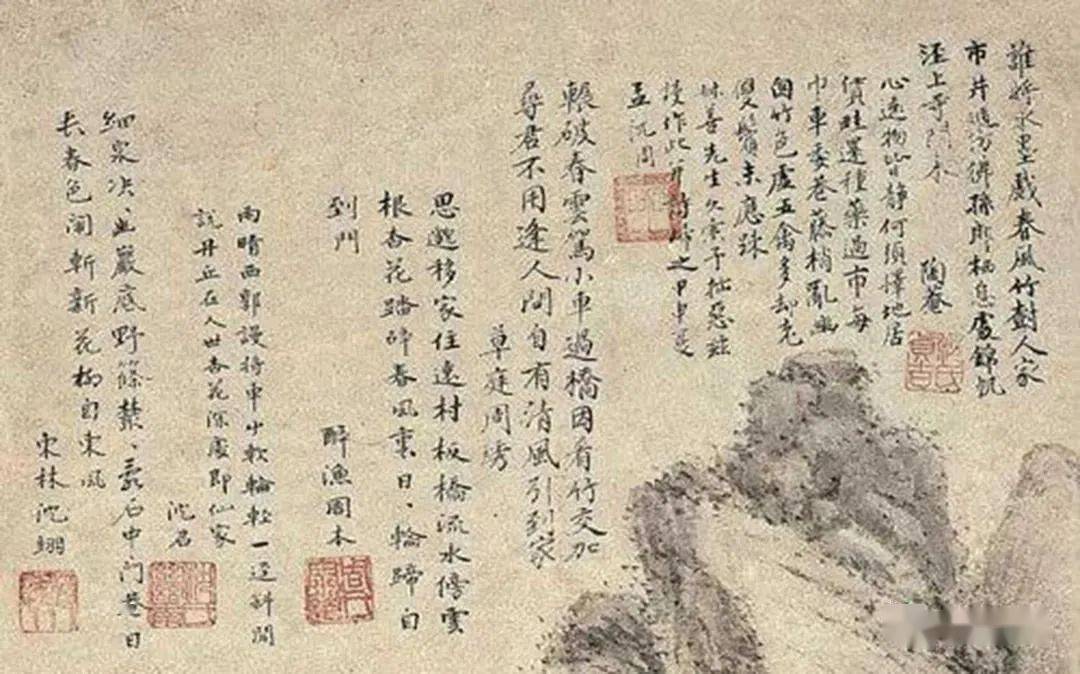 誰將水墨戲春風竹樹人家
市 彷彿孫郎栖息處錦帆
涇上寺門 陶菴
心遠物皆靜何須擇地居
畦還種藥過市每
巾車委巷藤梢亂幽
窗竹色虛五禽多却
鬢未應疎
善先生久索予拙惡茲
後作此并詩歸之甲申夏
孟沈周
輾破春雲駕小車過橋因看竹交加
尋君不用逢人問自有清風引到家
草庭周
思 移家住遠村板橋流水傍雲
根杏花踏碎春風裏日〻輪蹄自
到門
醉漁周本
雨晴西郭謾待車少軟輪輕一逕斜聞
說丹丘在人世杏花深處即仙家
沈召
細泉決〻出巖底野篠叢〻 石中門巷日
長春色閙斬新花柳自東風
東林沈翊